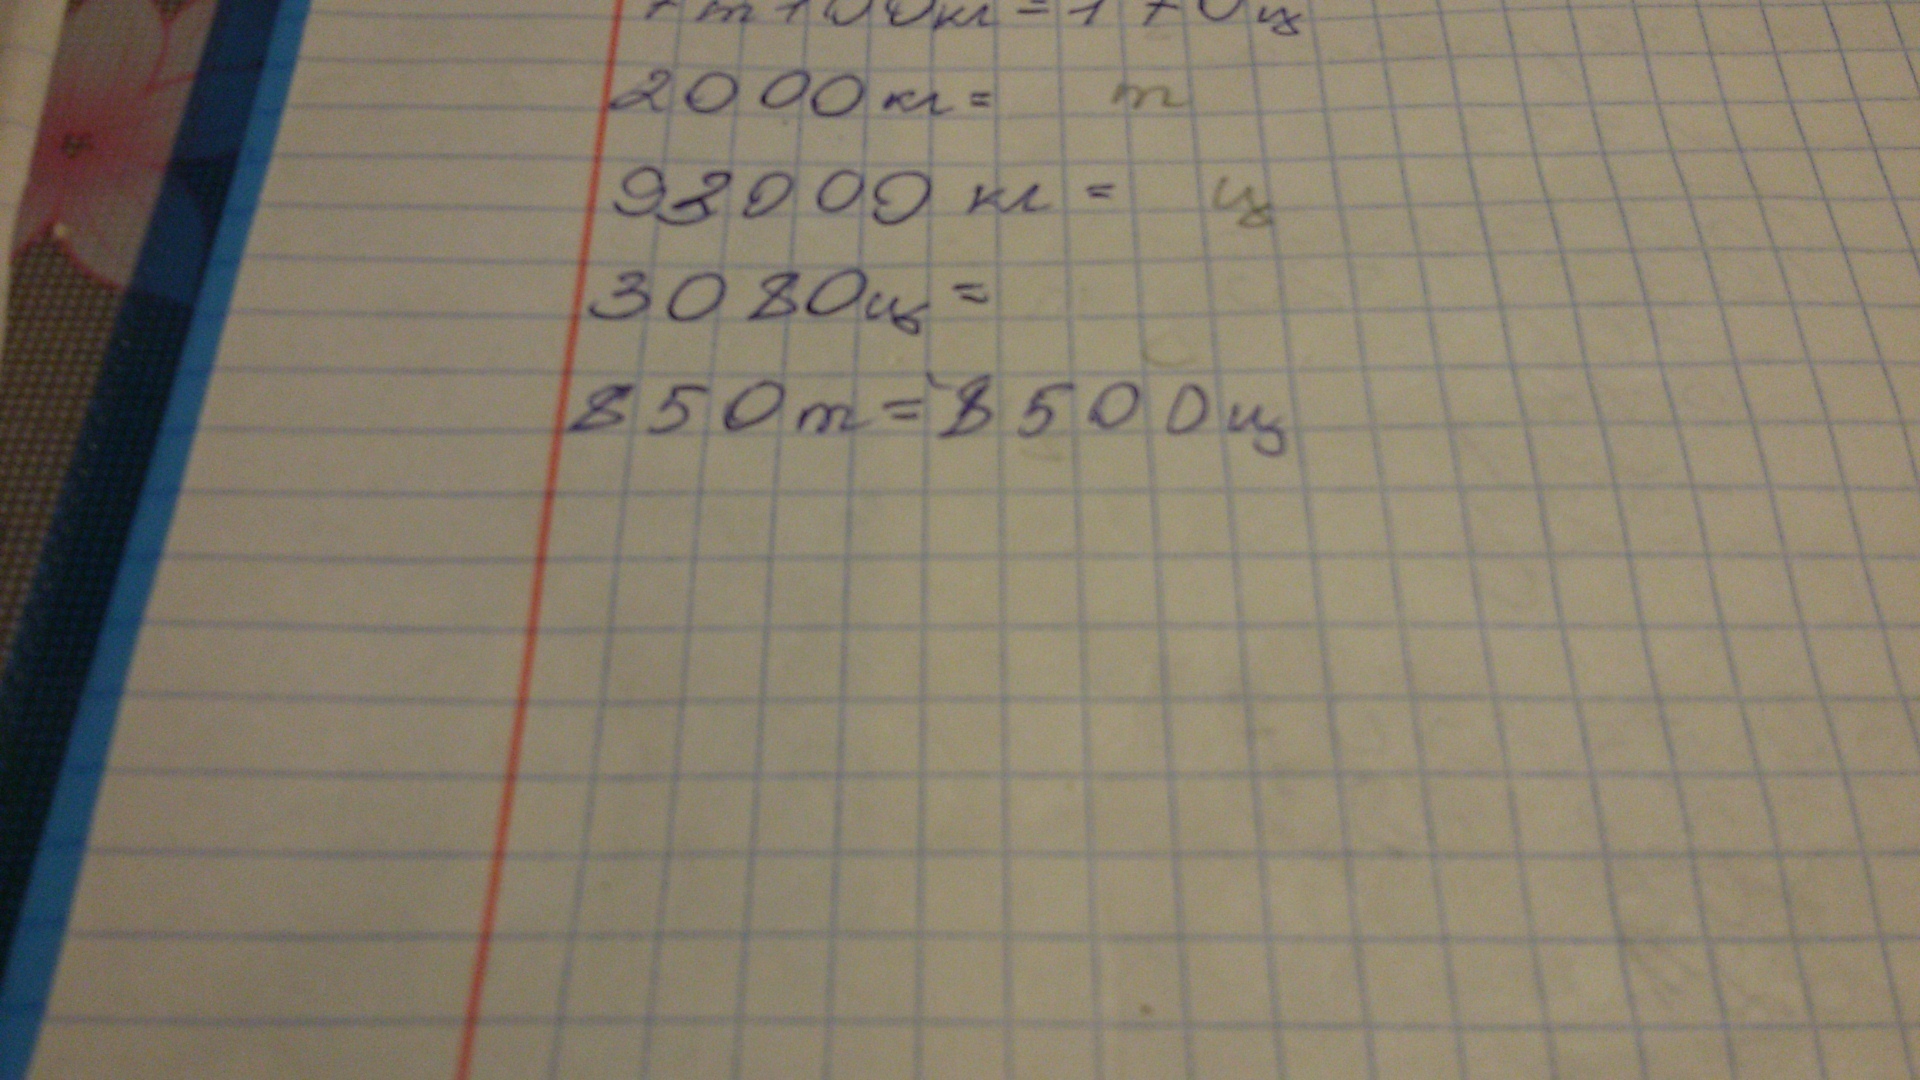 7т100кг=170ц
2000кг= т
93000 кг = ц
3080ц=
850т=8500ц